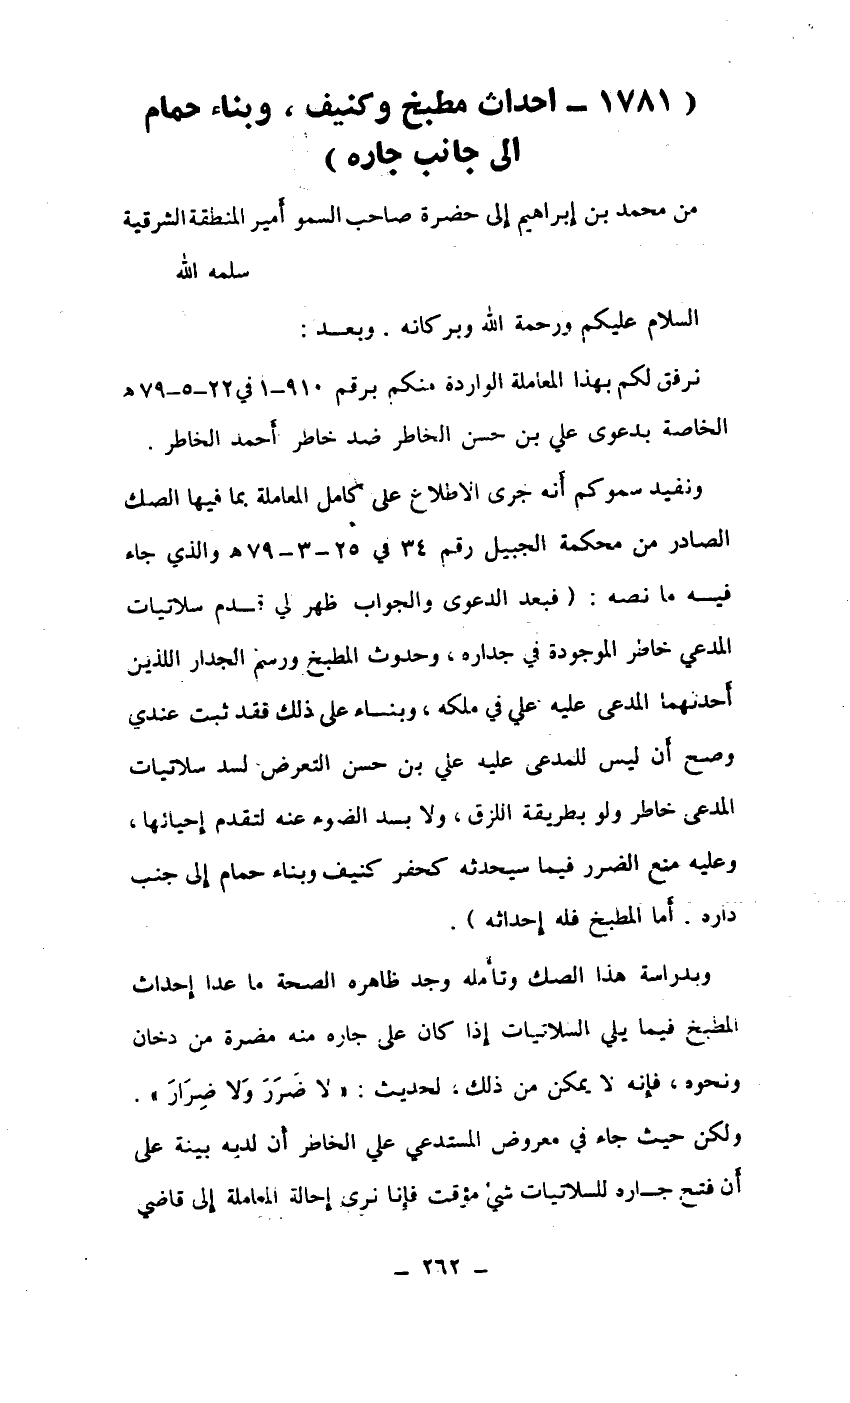 ( ١٧٨١ ــ احداث مطبخ وكنيف ، وبناء حمام
الى جانب جاره )
من محمد بن إبراهيم إلى حضرة صاحب السمو أمير المنطقة الشرقية
سلمه الله
السلام عليكم ورحمة الله وبركاته . وبعــد :
نرفق لكم بهذا المعاملة الواردة منكم برقم ٩١٠ــ١ في ٢٢ــ٥ــ٧٩ه
الخاصة بدعوى علي بن حسن الخاطر ضد خاطر أحمد الخاطر .
ونفيد سموكم أنه جرى الاطلاع على كامل المعاملة بما فيها الصك
الصادر من محكمة الجبيل رقم ٣٤ في ٢٥ــ٣ــ٧٩ه والذي جاء
فيــه ما نصه : ( فبعد الدعوى والجواب ظهر لي تقــدم سلاتيات
المدعي خاطر الموجودة في جداره ، وحدوث المطبخ ورسم الجدار اللذين
أحدثهما المدعى عليه علي في ملكه ، وبنــاء على ذلك فقد ثبت عندي
وصح أن ليس للمدعى عليه علي بن حسن التعرض لسد سلاتيات
المدعى خاطر ولو بطريقة اللزق ، ولا بسد الضوء عنه لتقدم إحيائها ،
وعليه منع الضرر فيما سيحدثه كحفر كنيف وبناء حمام إلى جنب
داره . أما المطبخ فله إحداثه ) .
وبدراسة هذا الصك وتأمله وجد ظاهره الصحة ما عدا إحداث
المطبخ فيما يلي السلاتيات إذا كان على جاره منه مضرة من دخان
ونحوه ، فإنه لا يمكن من ذلك ، لحديث : « لا ضَرَرَ وَلا ضِرَارَ » .
ولكن حيث جاء في معروض المستدعي علي الخاطر أن لديه بينة على
أن فتح جــاره للسلاتيات شيء مؤقت فإنا نرى إحالة المعاملة إلى قاضي
ــ ٢٦٢ ــ